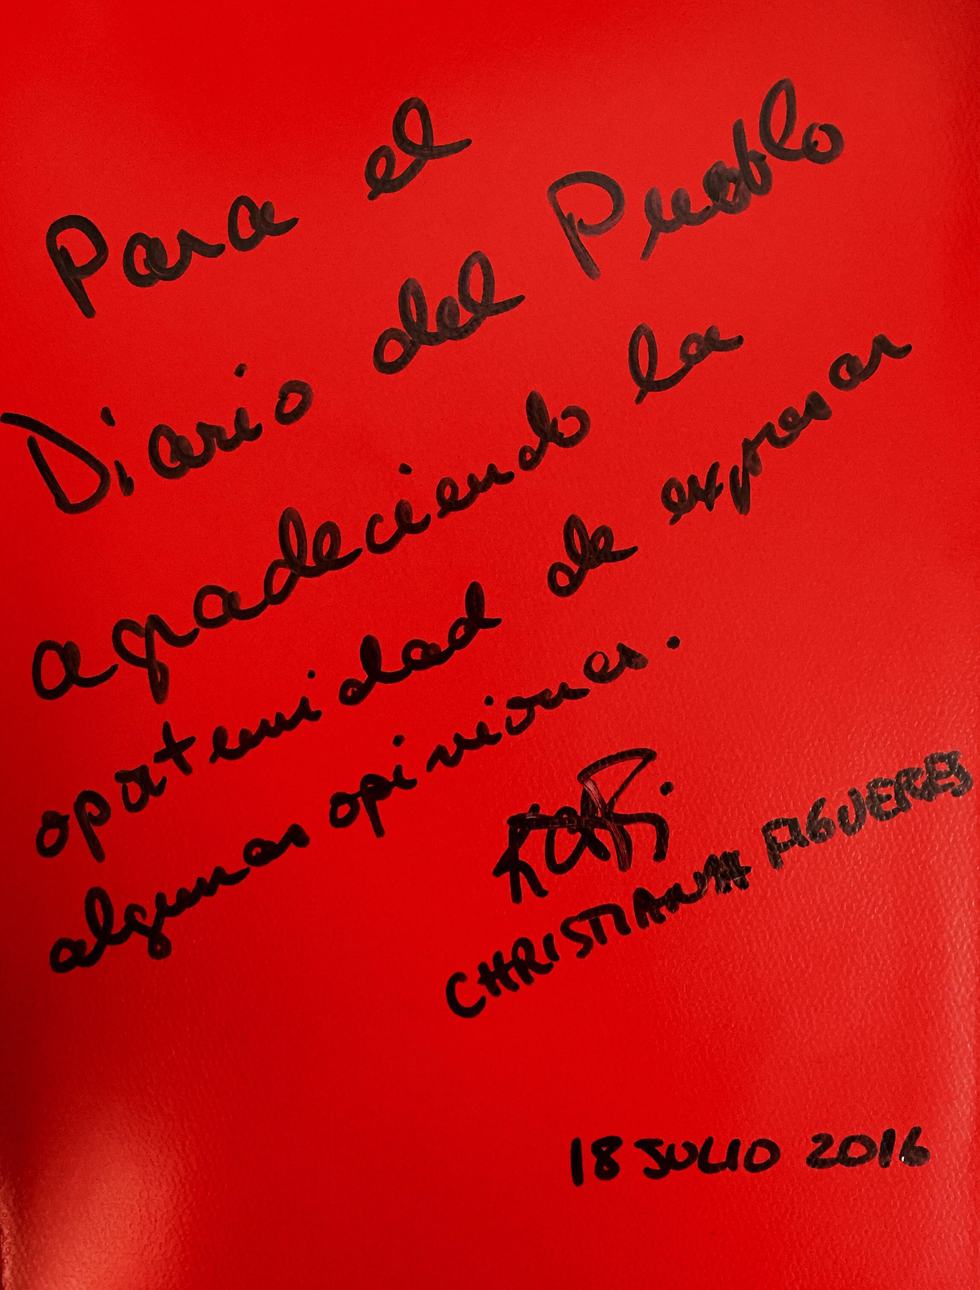 Para el
Diario del Pueblo
agradeciendo la
oportunidad de expresar
algunas opiniones.
CHRISTIANA FIGUERES
18 JULIO 2016